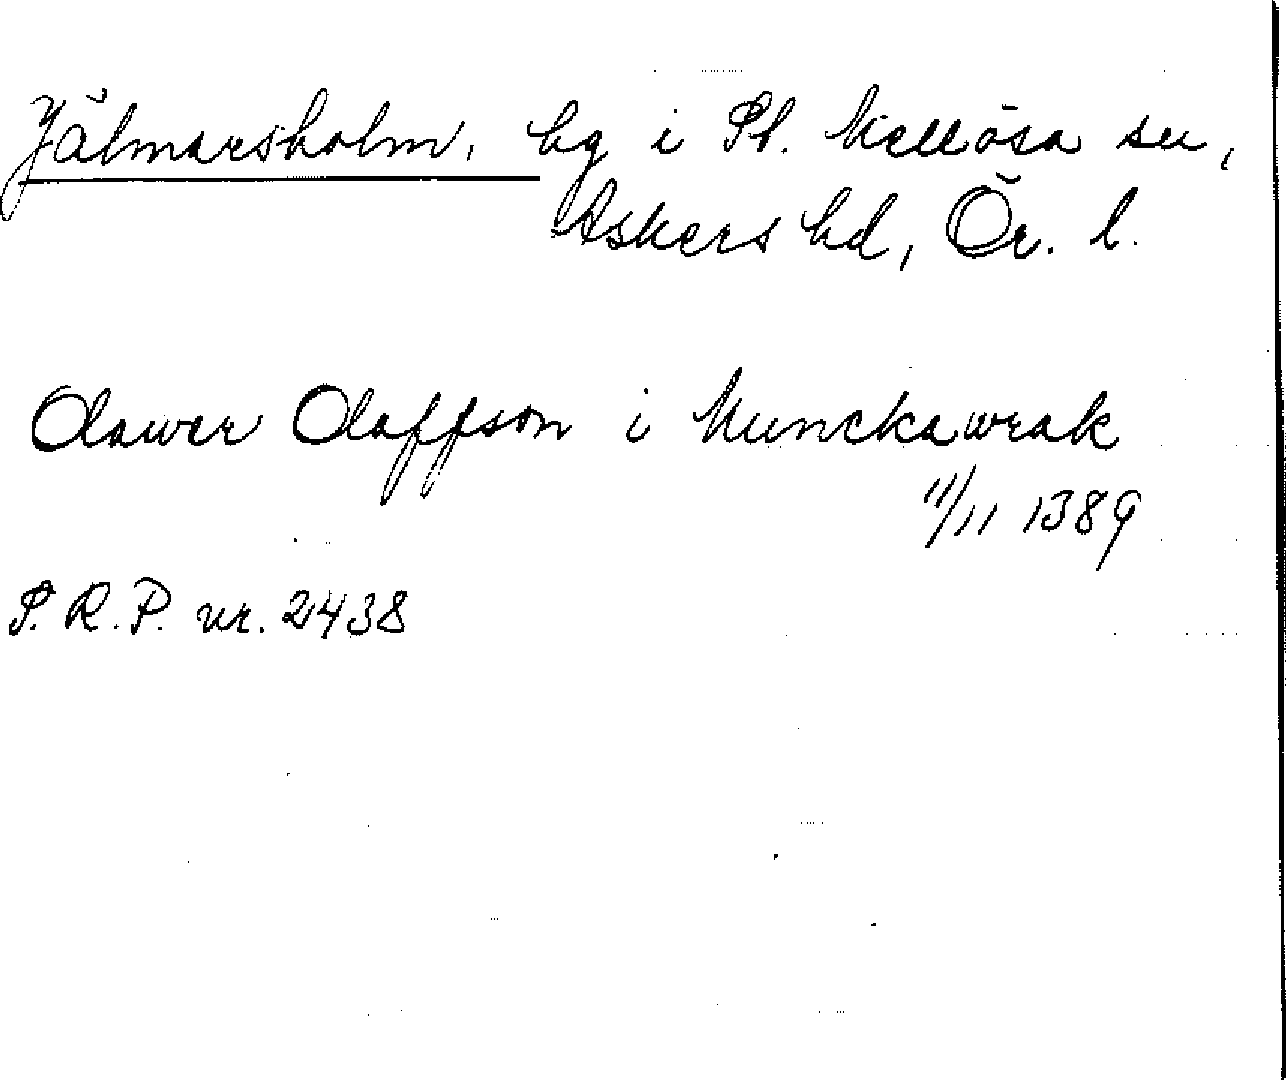 Hjälmarsholm, hg i St. Mellösa sn,
Askers hd, Ör. l.
Olawer Olaffson i Munckawrak
11/11 1389
S.R.P. nr. 2438